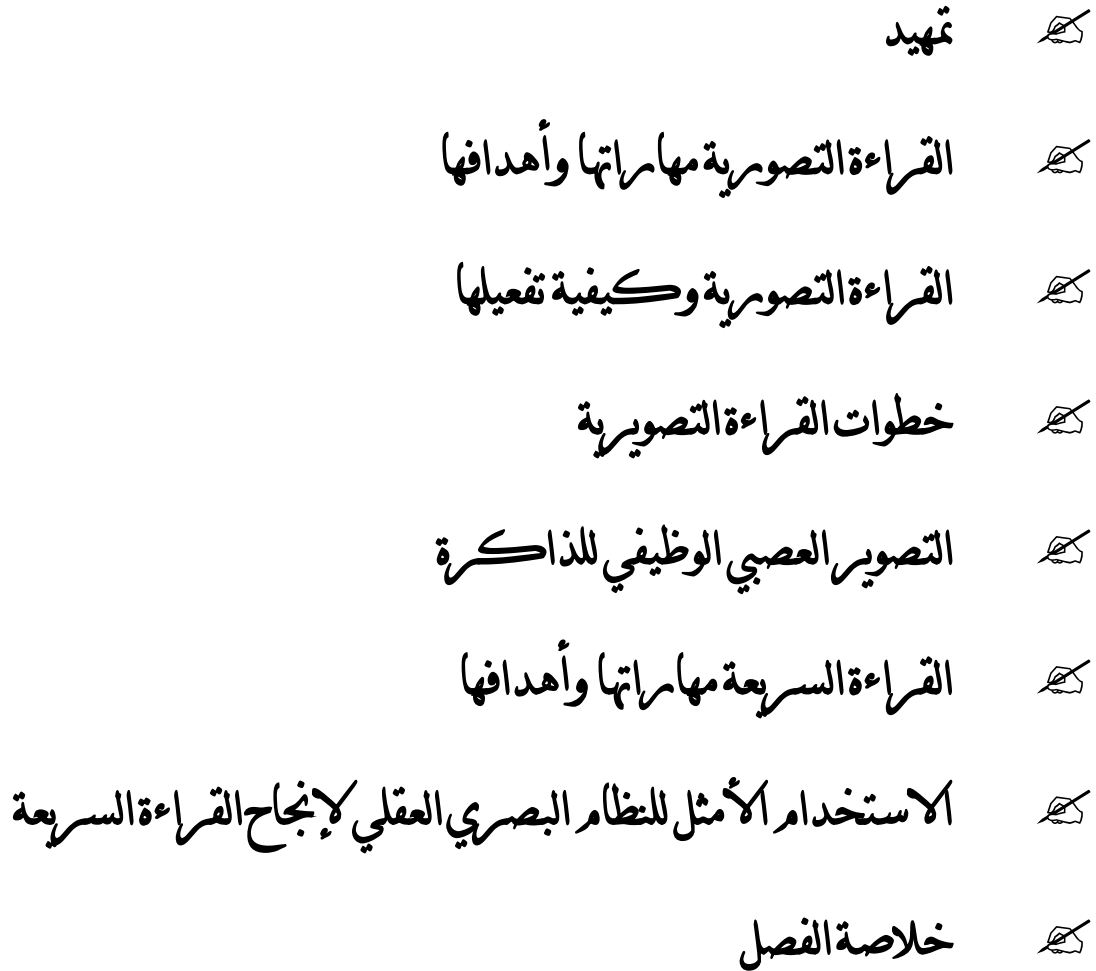 تمهيد
القراءة التصورية مهاراتها وأهدافها
القراءة التصورية وكيفية تفعيلها
خطوات القراءة التصويرية
التصوير العصبي الوظيفي للذاكرة
القراءة السريعة مهاراتها وأهدافها
الاستخدام الأمثل للنظام البصري العقلي لإنجاح القراءة السريعة
خلاصة الفصل